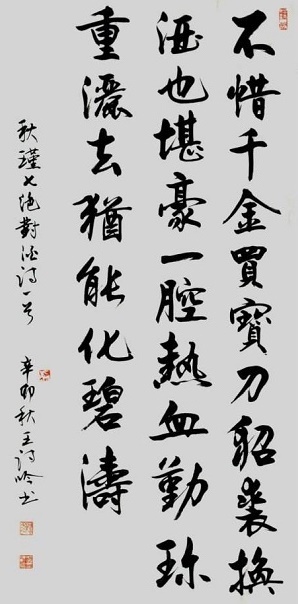 不惜千金買寶刀貂裘換
酒也堪豪一腔熱血勤珎
重灑去猶能化碧濤
秋瑾七絕對酒詩一首
辛卯秋王詩吟书